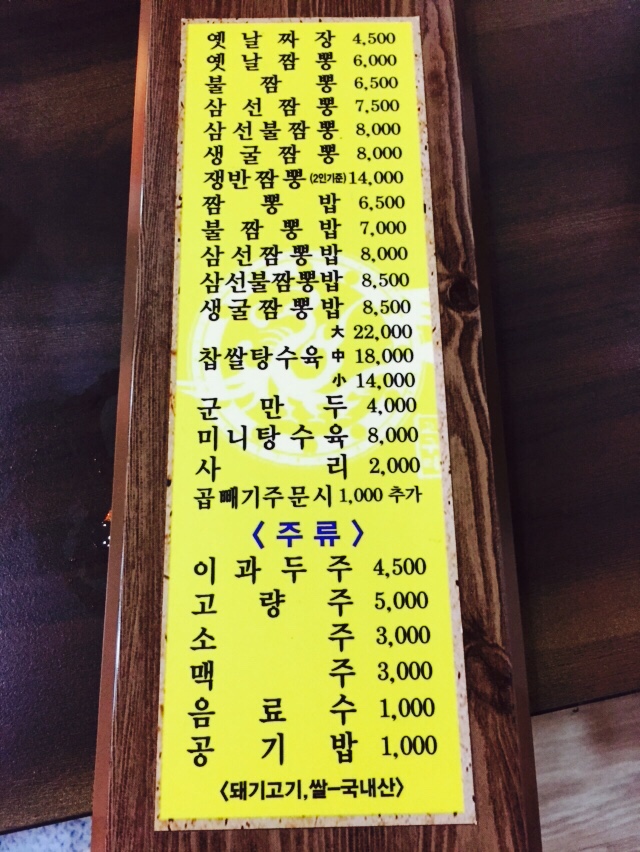 옛날짜장 4,500
옛날짬뽕 6,000
불짬뽕 6,500
삼선짬뽕 7,500
삼선불짬뽕 8,000
생굴짬뽕 8,000
쟁반짬뽕(2인기준) 14,000
짬뽕밥 6,500
불짬뽕밥 7,000
삼선짬뽕밥 8,000
삼선불짬뽕밥 8,500
생굴짬뽕밥 8,500
大 22,000
찹쌀탕수육 中 18,000
小 14,000
군만두 4,000
미니탕수육 8,000
사리 2,000
곱빼기주문시 1,000 추가
<주류>
이과두주 4,500
고량주 5,000
소주 3,000
맥주 3,000
음료수 1,000
공기밥 1,000
<돼기고기,쌀-국내산>